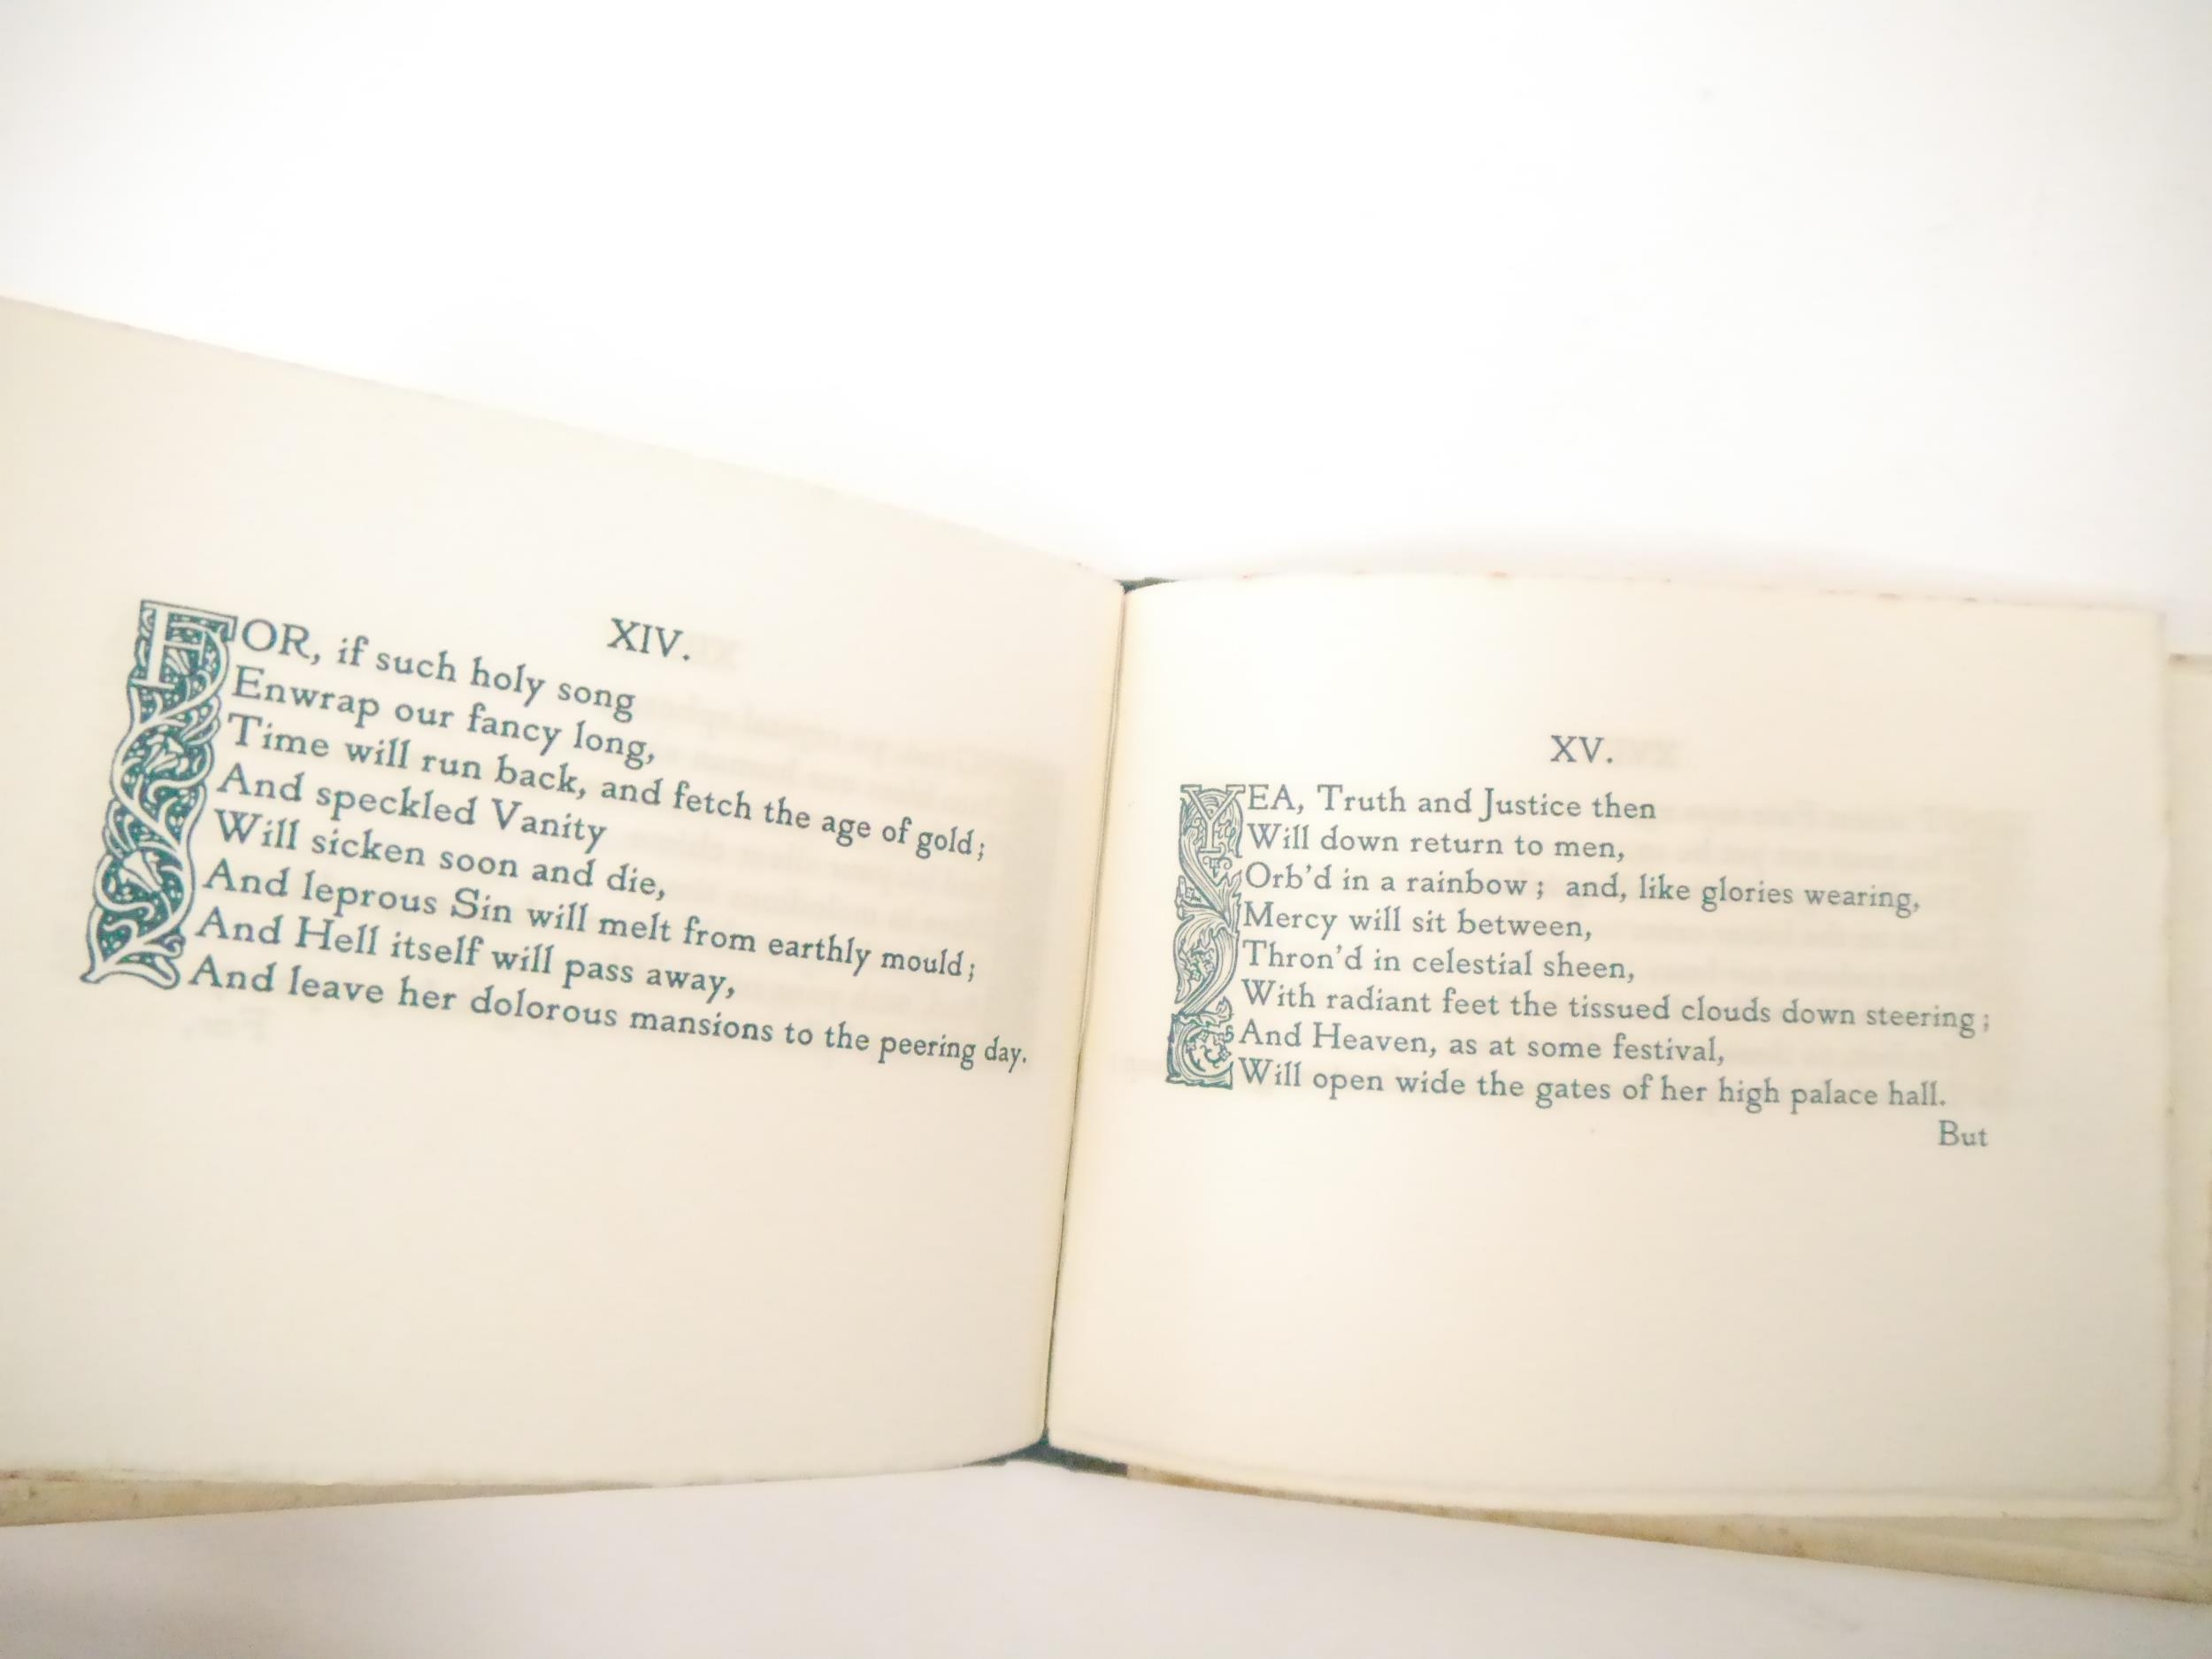 XIV.
FOR, if such holy song
Enwrap our fancy long,
Time will run back, and fetch the age of gold;
And speckled Vanity
Will sicken soon and die,
And leprous Sin will melt from earthly mould;
And Hell itself will pass away,
And leave her dolorous mansions to the peering day.
XV.
YEA, Truth and Justice then
Will down return to men,
Orb'd in a rainbow; and, like glories wearing,
Mercy will sit between,
Thron'd in celestial sheen,
With radiant feet the tissued clouds down steering;
And Heaven, as at some festival,
Will open wide the gates of her high palace hall.
But